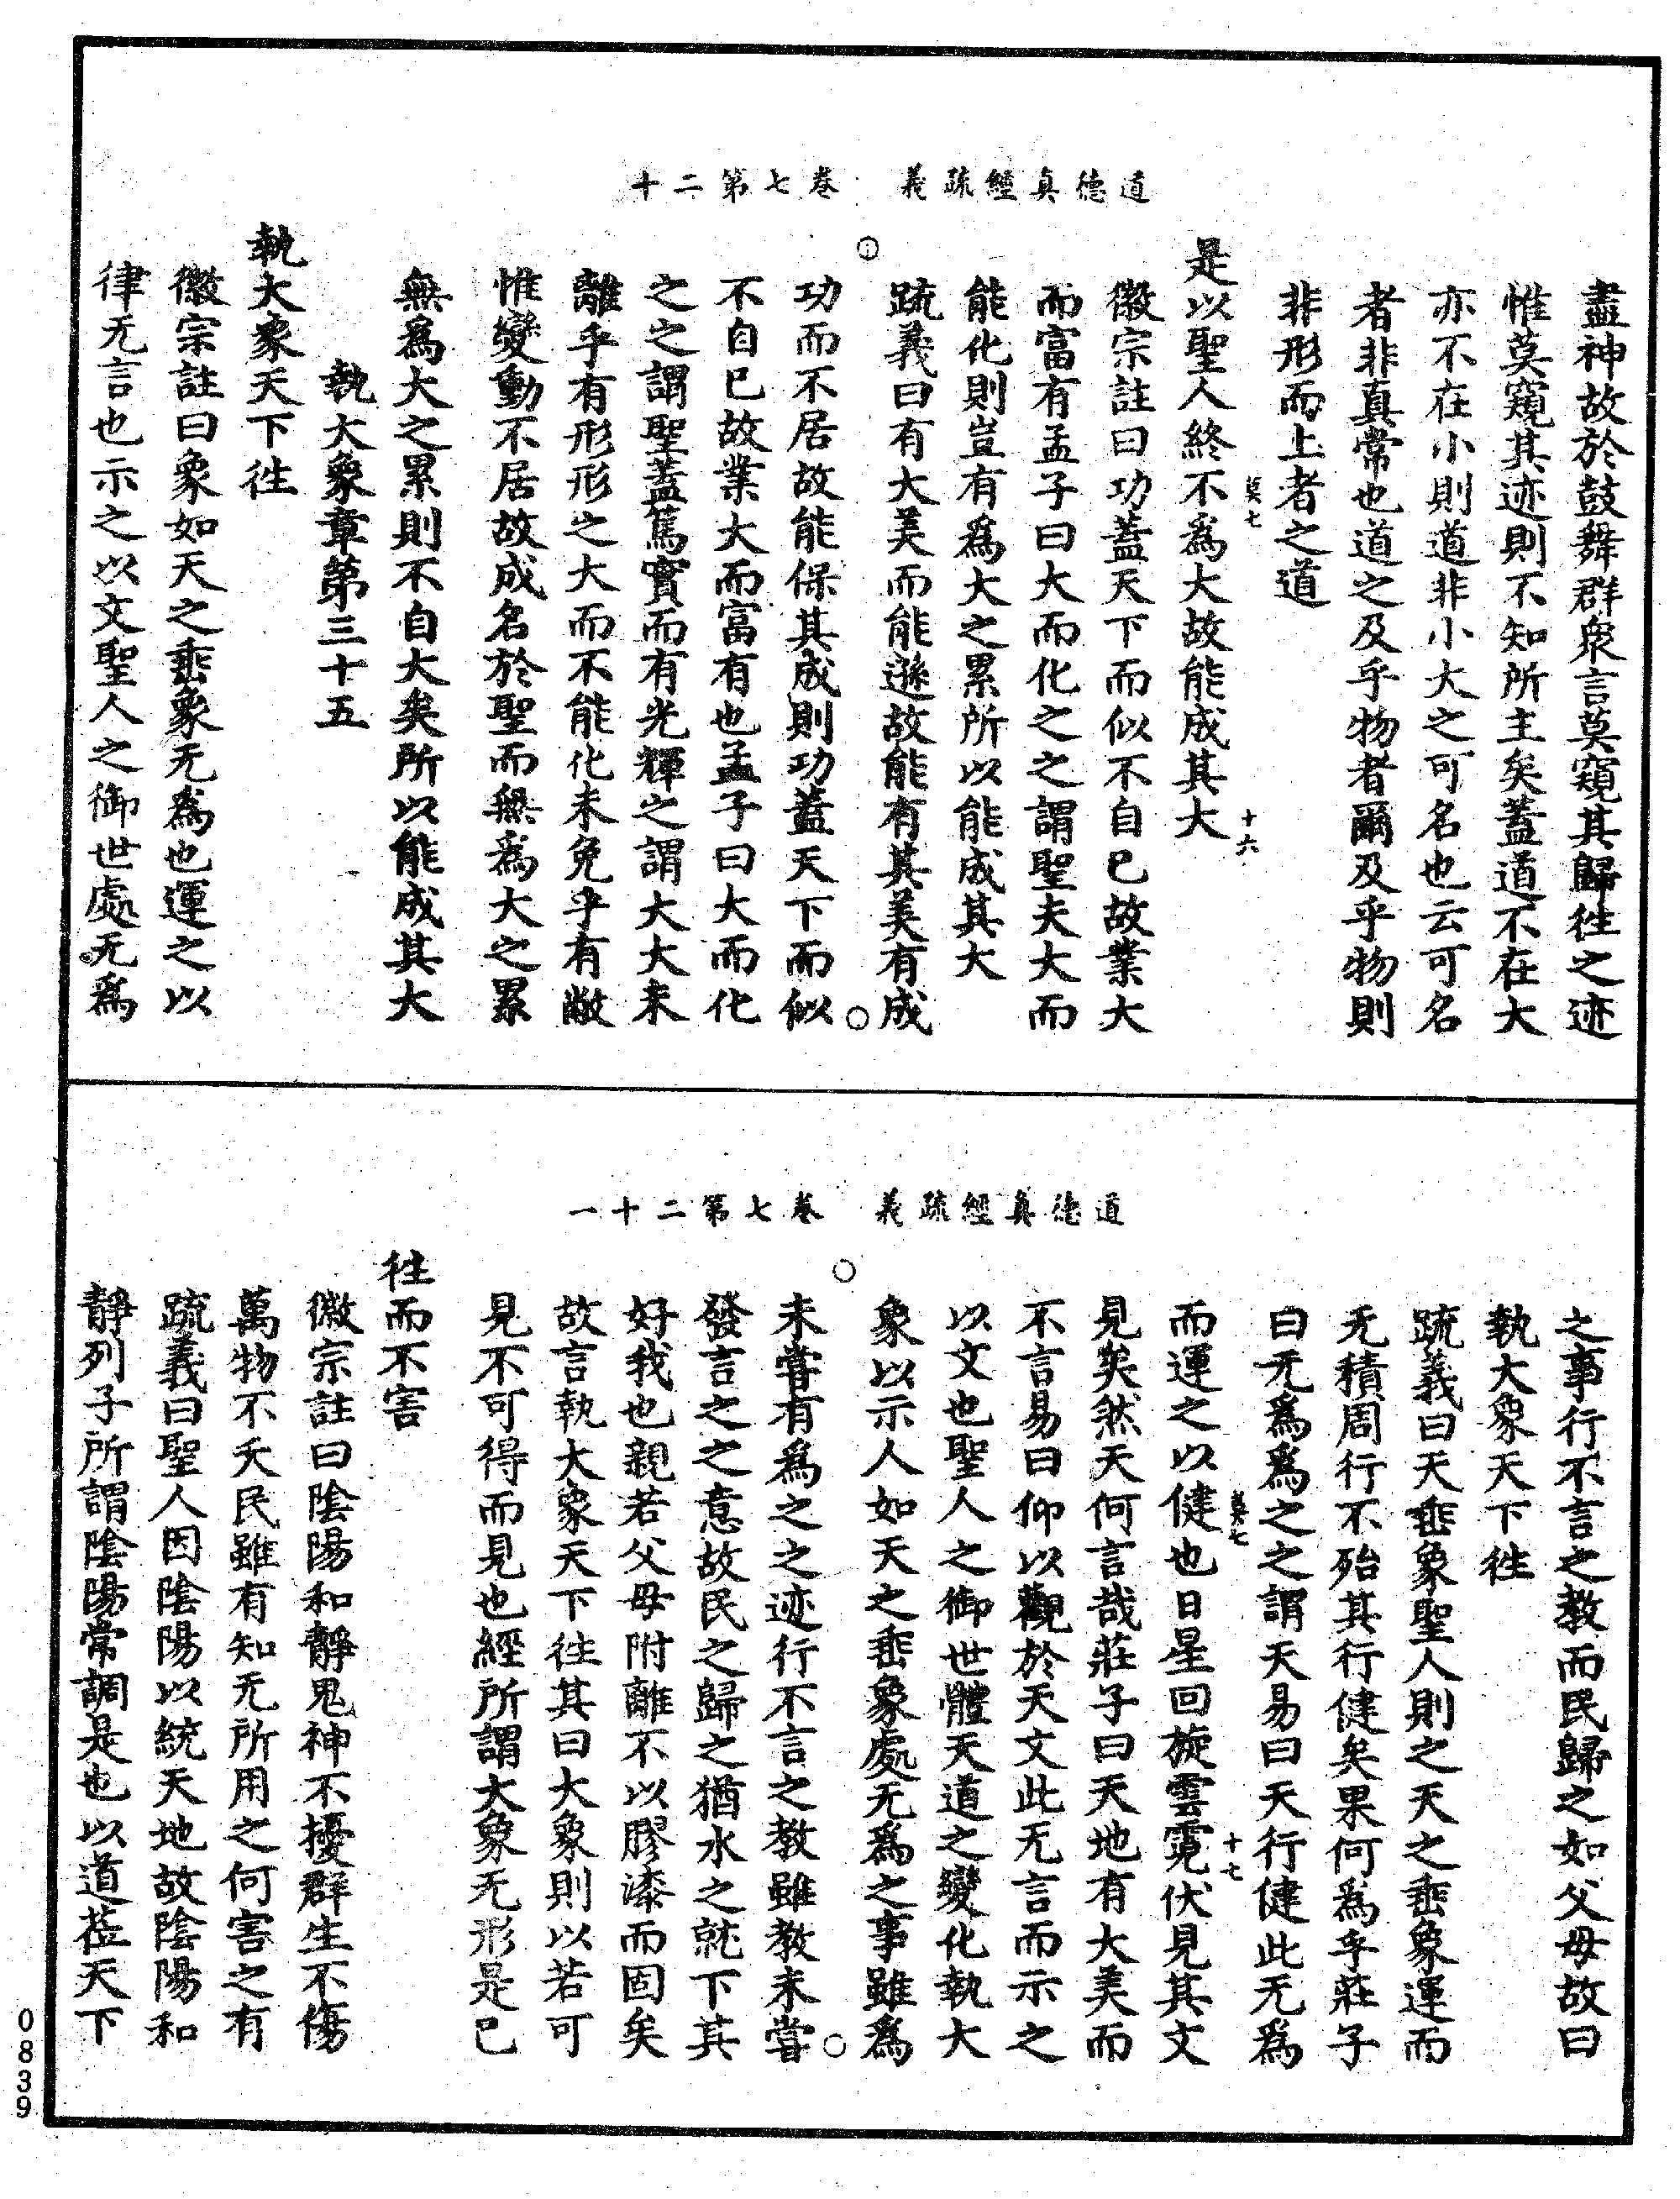 道德真經疏義　卷七第二十
盡神故於鼓舞群衆言莫窺其歸徃之迹
惟莫窺其迹則不知所主矣蓋道不在大
亦不在小則道非小大之可名也云可名
者非真常也道之及乎物者爾及乎物則
非形而上者之道
莫七　十六
是以聖人終不爲大故能成其大
徽宗註曰功蓋天下而似不自已故業大
而富有孟子曰大而化之之謂聖夫大而
能化則豈有爲大之累所以能成其大
疏義曰有大美而能遜故能有其美有成
功而不居故能保其成則功蓋天下而似
不自已故業大而富有也孟子曰大而化
之之謂聖蓋篤實而有光輝之謂大大未
離乎有形形之大而不能化未免乎有敝
惟變動不居故成名於聖而無爲大之累
無爲大之累則不自大矣所以能成其大
執大象章第三十五
執大象天下徃
徽宗註曰象如天之垂象无爲也運之以
律无言也示之以文聖人之御世處无爲
道德真經疏義　卷七第二十一
之事行不言之教而民歸之如父母故曰
執大象天下徃
疏義曰天垂象聖人則之天之垂象運而
无積周行不殆其行健矣果何爲乎莊子
曰无爲爲之之謂天易曰天行健此无爲
莫七　十七
而運之以健也日星回旋雲霓伏見其文
見矣然天何言哉莊子曰天地有大美而
不言易曰仰以觀於天文此无言而示之
以文也聖人之御世體天道之變化執大
象以示人如天之垂象處无爲之事雖爲
未嘗有爲之之迹行不言之教雖教未嘗
發言之之意故民之歸之猶水之就下其
好我也親若父母附離不以膠漆而固矣
故言執大象天下徃其曰大象則以若可
見不可得而見也經所謂大象无形是已
徃而不害
徽宗註曰陰陽和靜鬼神不擾群生不傷
萬物不夭民雖有知无所用之何害之有
疏義曰聖人因陰陽以統天地故陰陽和
靜列子所謂陰陽常調是也以道莅天下
0839